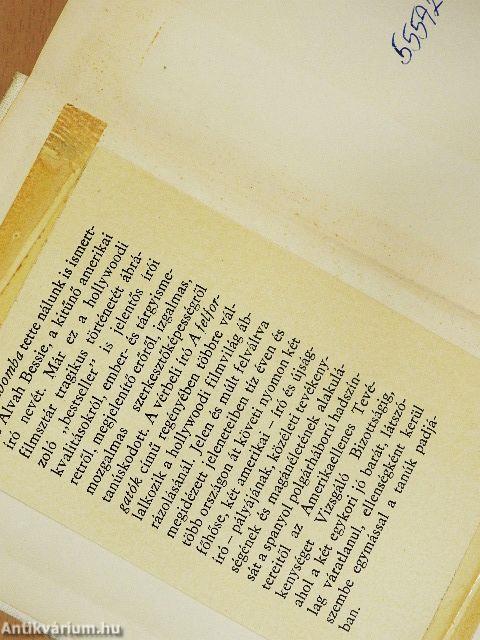 55572
bomba tette nálunk is ismert-
Alvah Bessie, a kitűnő amerikai
író nevét. Már ez a hollywoodi
filmsztár tragikus történetét ábrá-
zoló „bestseller" is jelentős írói
kvalitásokról, ember- és tárgyisme-
retről, megjelenítő erőről, izgalmas,
mozgalmas szerkesztőképességről
tanúskodott. A vérbeli író A felfor-
gatók című regényében többre vál-
lalkozik a hollywoodi filmvilág áb-
rázolásánál. Jelen és múlt felváltva
megidézett jeleneteiben tíz éven és
több országon át követi nyomon két
főhőse, két amerikai – író és újság-
író – pályájának, közéleti tevékeny-
ségének és magánéletének alakulá-
sát a spanyol polgárháború hadszín-
tereitől az Amerikaellenes Tevé-
kenységet Vizsgáló Bizottságig,
ahol a két egykori jó barát, látszó-
lag váratlanul, ellenségként kerül
szembe egymással a tanúk padjá-
ban.
Antikvárium.hu